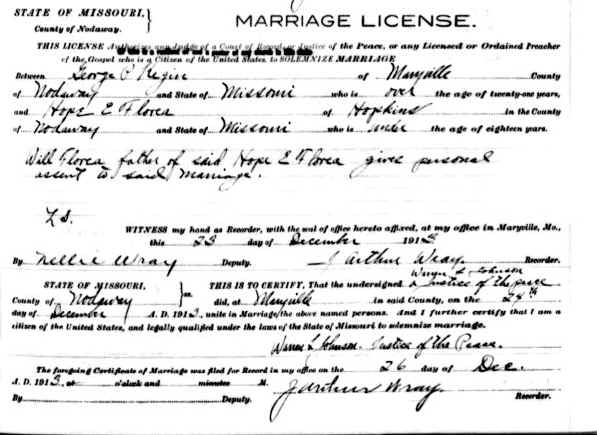 STATE OF MISSOURI, }
County of Nodaway.
MARRIAGE LICENSE.
THIS LICENSE Authorizes any Judge of a Court of Record or Justice of the Peace, or any Licensed or Ordained Preacher
of the Gospel who is a Citizen of the United States, to SOLEMNIZE MARRIAGE
Between George P of Maryville County
of Nodaway and State of Missouri who is over the age of twenty-one years,
and Hope E Florea of Hopkins in the County
of Nodaway and State of Missouri who is under the age of eighteen years.
Will Florea father of said Hope E Florea gives personal
assent to said marriage.
L S.
WITNESS my hand as Recorder, with the seal of office hereto affixed, at my office in Maryville, Mo.,
this 23 day of December 1913
By Nellie Wray Deputy. J Arthur Wray. Recorder.
STATE OF MISSOURI, } ss. THIS IS TO CERTIFY, That the undersigned Warren L Johnson a Justice of the peace
County of Nodaway did, at Maryville in said County, on the 24th
day of December A. D. 1913, unite in Marriage the above named persons. And I further certify that I am a
citizen of the United States, and legally qualified under the laws of the State of Missouri to solemnize marriage.
Warren L Johnson. Justice of the Peace.
The foregoing Certificate of Marriage was filed for Record in my office on the 26 day of Dec.
A. D. 1913, at o'clock and minutes M. J Arthur Wray.
By Deputy. Recorder.